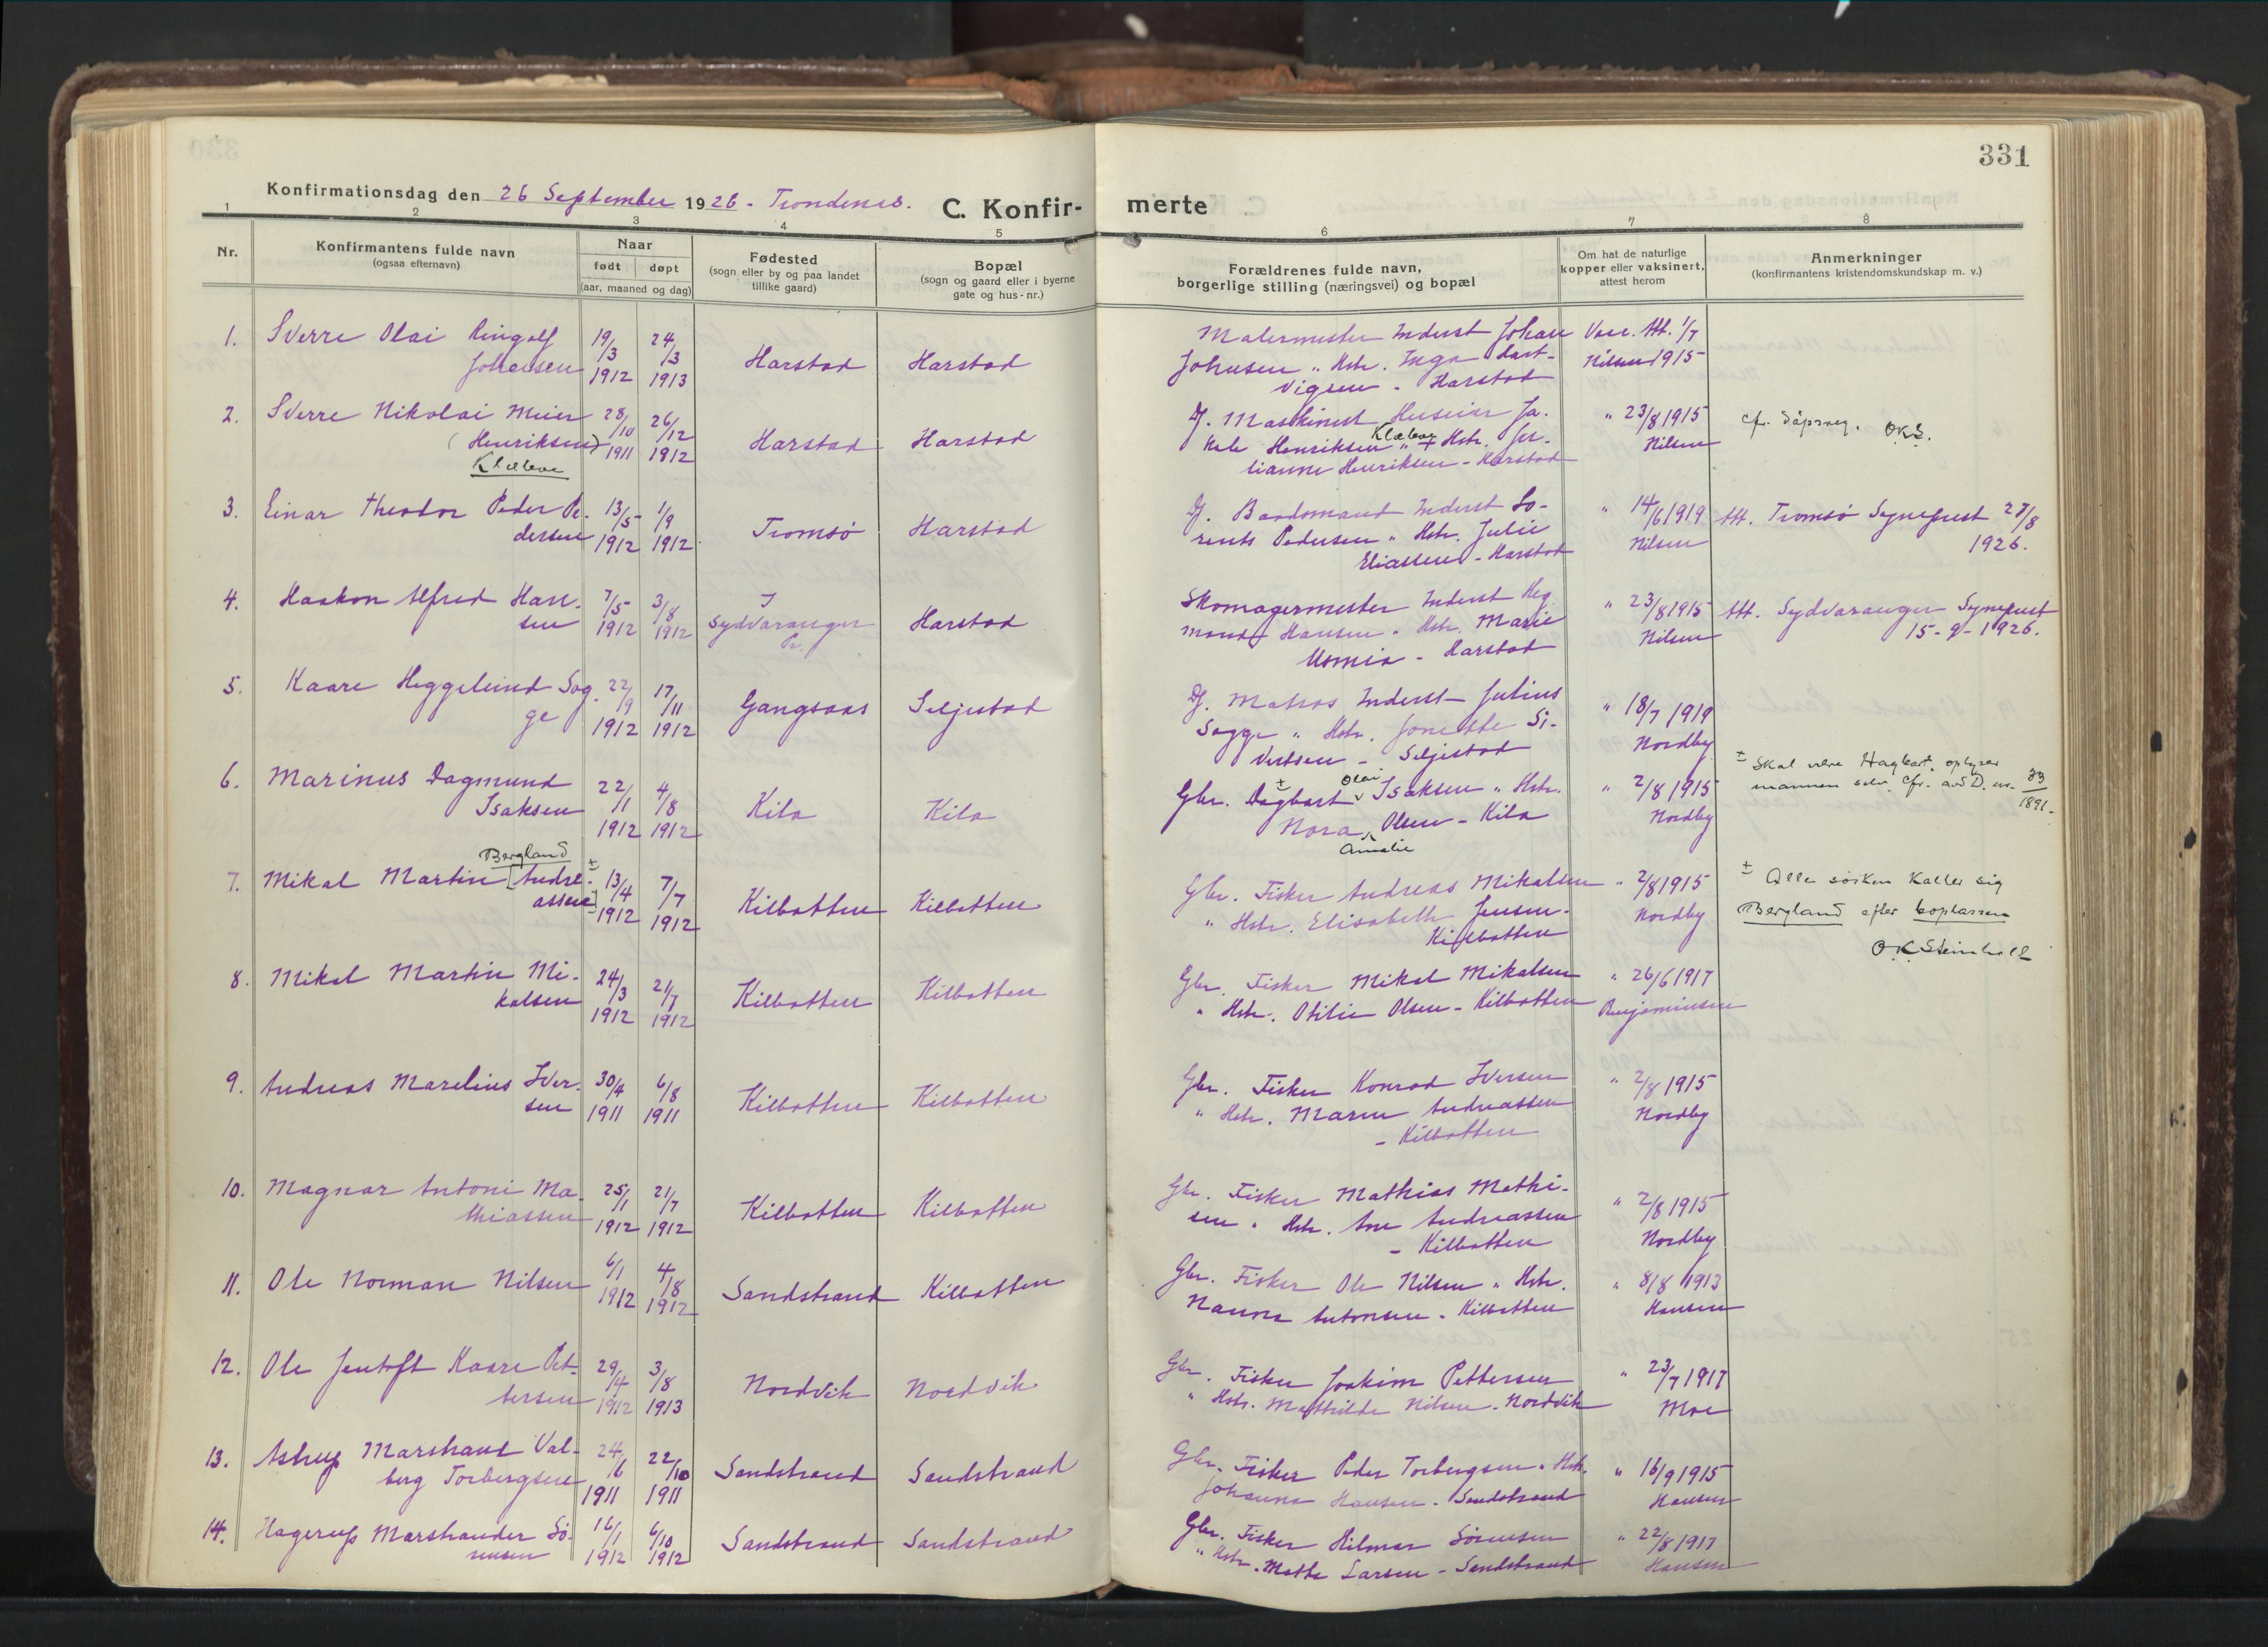 331
Konfirmationsdag den 26 September 1926 - Trondenes.
C. Konfir-
merte
1 2 3 4 5 6 7 8
Nr.
Konfirmantens fulde navn
(ogsaa efternavn)
Naar
født døpt
(aar, maaned og dag)
Fødested
(sogn eller by og paa landet
tillike gaard)
Bopæl
(sogn og gaard eller i byerne
gate og hus-nr.)
Forældrenes fulde navn,
borgerlige stilling (næringsvei) og bopæl
Om hat de naturlige
kopper eller vaksinert,
attest herom
Anmerkninger
(konfirmantens kristendomskundskap m. v.)
1. Sverre Olai Ringolf 19/3 24/3 Malermester Inderst Johan Vacc. Att. 1/7
Johansen 1912 1913 Harstad Harstad Johnsen " Hstr. Inga Hart- Nilsen 1915
vigsen - Harstad
2. Sverre Nikolai Meier 28/10 26/12 Dj. Maskinist Huseier Ja- " 23/8 1915 cfr. dåpsreg. OKS.
(Henriksen) 1911 1912 Harstad Harstad kob Henriksen Klæboe " + Hstr. Ju- Nilsen
Klæboe lianne Henriksen - Harstad
3. Einar Theodor Peder Pe- 13/5 1/9 Dj. Baadsmand Inderst Lo- " 14/6 1919 Att. Tromsø Sogneprest 27/8
dersen 1912 1912 Tromsø Harstad rents Pedersen " Hstr. Julie Nilsen 1926.
Eliassen - Harstad
4. Haakon Alfred Han- 7/5 3/8 Skomagermester Inderst Heg " 23/8 1915 Att. Sydvaranger Sogneprest
sen 1912 1912 Sydvaranger Pr. Harstad mond Hansen " Hstr. Marie Nilsen 15-9-1926.
- Harstad
5. Kaare Heggelund Sog- 22/9 17/11 Dj. Matros Inderst Julius " 18/7 1919
ge 1912 1912 Gangsaas Seljestad Sogge " Hstr. Jonette Si- Nordby
vertsen - Seljestad
6. Marinus Dagmund 22/1 4/8 Gbr. Dagbart ± Olai Isaksen " Hstr. " 2/8 1915 ± Skal være Hagbart, oplyser
Isaksen 1912 1912 Kila Kila Nora Amalie Olsen - Kila Nordby mannen selv. Cfr. avd D. nr. 39/1891.
7. Mikal Martin [Andre- Bergland ± 13/4 7/7 Gbr. Fisker Andreas Mikalsen " 2/8 1915 ± Alle søsken kaller sig
assen] 1912 1912 Kilbotten Kilbotten " Hstr. Elisabeth Jensen - Nordby Bergland efter boplassen
Kilbotten OK Steinholt
8. Mikal Martin Mi- 24/3 21/7 Gbr. Fisker Mikal Mikalsen " 26/6 1917
kalsen 1912 1912 Kilbotten Kilbotten " Hstr. Otilie Olsen - Kilbotten Benjaminsen
9. Andreas Marelius Iver- 30/4 6/8 Gbr. Fisker Konrad Iversen " 2/8 1915
sen 1911 1911 Kilbotten Kilbotten " Hstr. Maren Andreassen Nordby
- Kilbotten
10. Magnar Antoni Ma- 25/1 21/7 Gbr. Fisker Mathias Mathi- " 2/8 1915
thiassen 1912 1912 Kilbotten Kilbotten sen " Hstr. Ane Andreassen Nordby
- Kilbotten
11. Ole Norman Nilsen 6/1 4/8 Gbr. Fisker Ole Nilsen " Hstr. " 8/8 1913
1912 1912 Sandstrand Kilbotten Nanna Antonsen - Kilbotten Hansen
12. Ole Jentoft Kaare Pet- 29/4 3/8 Gbr. Fisker Joakim Pettersen " 23/7 1917
tersen 1912 1913 Nordvik Nordvik " Hstr. Mathilde Nilsen - Nordvik Moe
13. Astrup Marstrand Val- 24/6 22/10 Gbr. Fisker Peder Torbergsen " Hstr. " 16/9 1915
berg Torbergsen 1911 1911 Sandstrand Sandstrand Johanna Hansen - Sandstrand Hansen
14. Hagerup Marstrander Sø- 16/1 6/10 Gbr. Fisker Hilmar Sørensen " 22/8 1917
rensen 1912 1912 Sandstrand Sandstrand " Hstr. Mette Larsen - Sandstrand Hansen